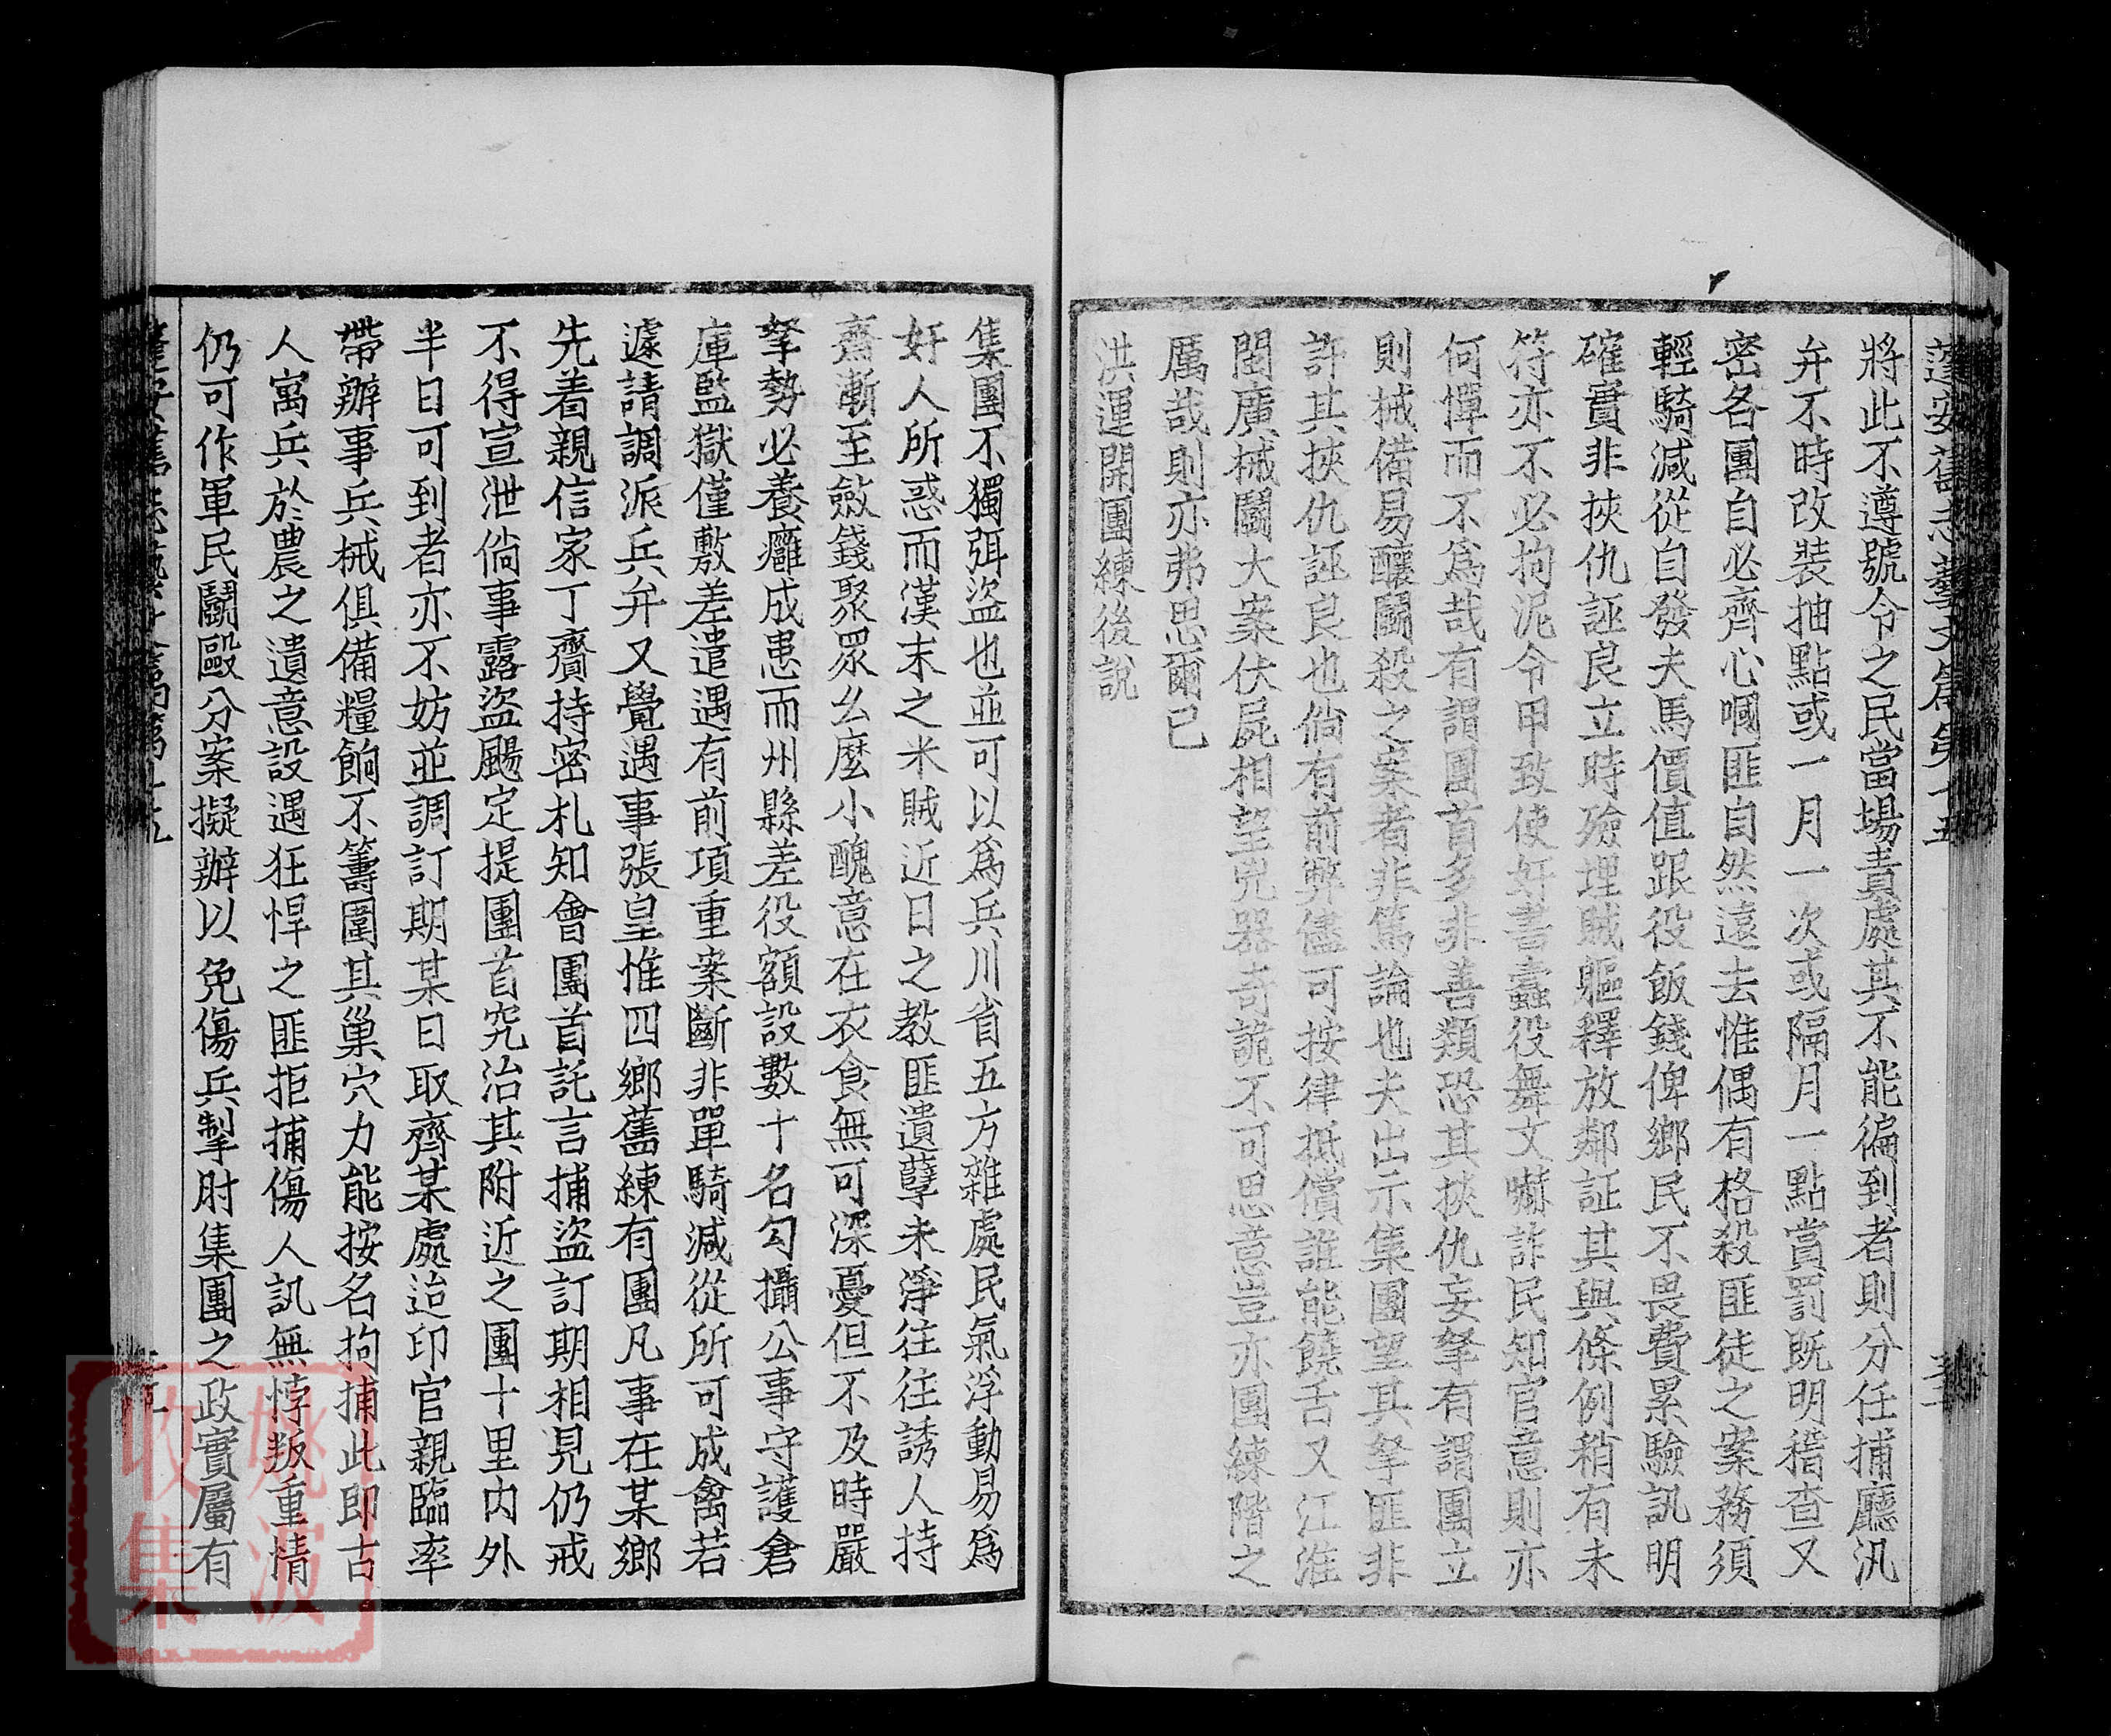 蓬安舊志藝文篇第十五
將此不遵號令之民當場責處其不能徧到者則分任捕廳汛
弁不時改裝抽點或一月一次或隔月一點賞罰既明稽查又
密各團自必齊心嘓匪自然遠去惟偶有格殺匪徒之案務須
輕騎減從自發夫馬價值跟役飯錢俾鄉民不畏費累驗訊明
確實非挾仇誣良立時殮埋賊軀釋放鄰証其與條例稍有未
符亦不必拘泥令甲致使奸書蠹役舞文嚇詐民知官意則亦
何憚而不爲哉有謂團首多非善類恐其挾仇妄拏有謂團立
則械備易釀鬬殺之案者非篤論也夫出示集團望其拏匪非
許其挾仇誣良也倘有前弊儘可按律抵償誰能饒舌又江淮
閩廣械鬬大案伏屍相望兇器奇詭不可思意豈亦團練階之
厲哉則亦弗思爾已
洪運開團練後說
集團不獨弭盜也並可以爲兵川省五方雜處民氣浮動易爲
奸人所惑而漢末之米賊近日之教匪遺孽未淨往往誘人持
齋漸至斂錢聚眾么麼小醜意在衣食無可深憂但不及時嚴
拏勢必養癰成患而州縣差役額設數十名勾攝公事守護倉
庫監獄僅敷差遣遇有前項重案斷非單騎減從所可成禽若
遽請調派兵弁又覺遇事張皇惟四鄉舊練有團凡事在某鄉
先着親信家丁齎持密札知會團首託言捕盜訂期相見仍戒
不得宣泄倘事露盜颺定提團首究治其附近之團十里內外
半日可到者亦不妨並調訂期某日取齊某處迨印官親臨率
帶辦事兵械俱備糧餉不籌圍其巢穴力能按名拘捕此即古
人寓兵於農之遺意設遇狂悍之匪拒捕傷人訊無悖叛重情
仍可作軍民鬬毆分案擬辦以免傷兵掣肘集團之政實屬有
姚波
收集